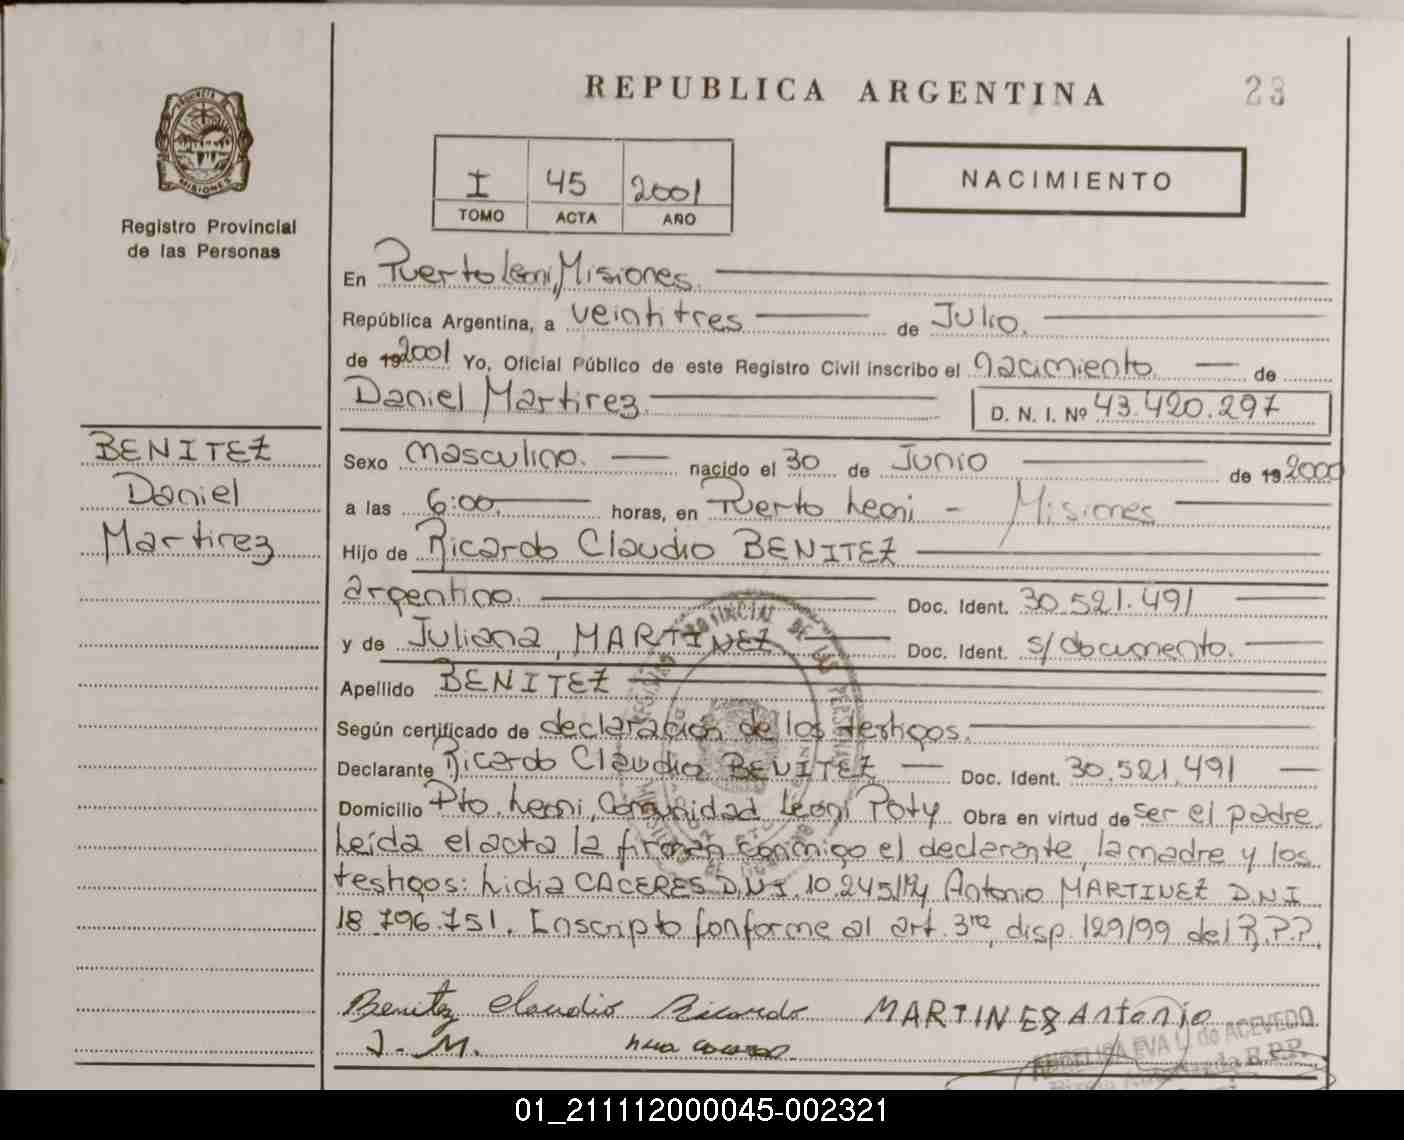 REPUBLICA ARGENTINA
23
PROVINCIA DE
MISIONES
Registro Provincial
de las Personas
I 45 2001
TOMO ACTA AÑO
NACIMIENTO
En Puerto Leoni, Misiones.
República Argentina, a veintitres de Julio.
de 19 2001 Yo, Oficial Público de este Registro Civil inscribo el nacimiento de
Daniel Martirez D. N. I. Nº 43.420.297
BENITEZ
Daniel
Martirez
Sexo masculino. nacido el 30 de Junio de 19 2000
a las 6:00. horas, en Puerto Leoni - Misiones
Hijo de Ricardo Claudio BENITEZ
argentino. Doc. Ident. 30.521.491
y de Juliana, MARTINEZ Doc. Ident. s/documento.
Apellido BENITEZ
Según certificado de declaración de los testigos.
Declarante Ricardo Claudio BENITEZ Doc. Ident. 30.521.491
Domicilio Pto. Leoni, Comunidad Leoni Poty Obra en virtud de ser el padre
Leída el acta la firman conmigo el declarante, la madre y los
testigos: Lidia CACERES D.N.I. 10.245 Antonio MARTINEZ D.N.I
18.796.751. Inscripto conforme al art. 3ra, disp. 129/99 del R.P.P.
Benitez Claudio Ricardo MARTINEZ Antonio
J. M.
ANGELICA EVA L. de ACEVEDO
R.P.P.
01_211112000045-002321